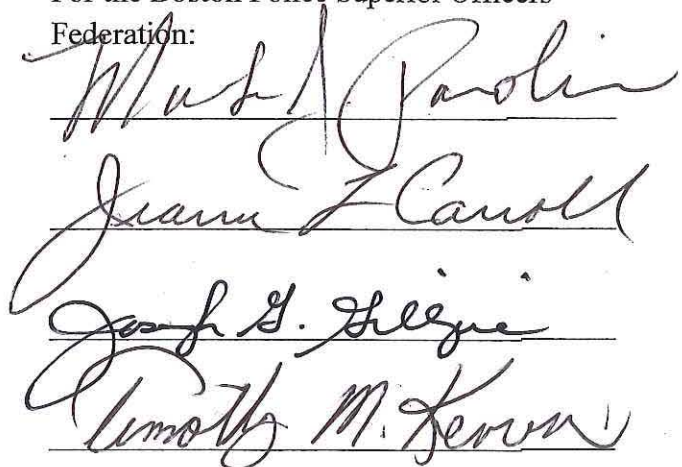 For the Boston Police Superior Officers
Federation:
Mark J Parolin
Jeanne L Carroll
Joseph G. Gillespie
Timothy M. Kervin